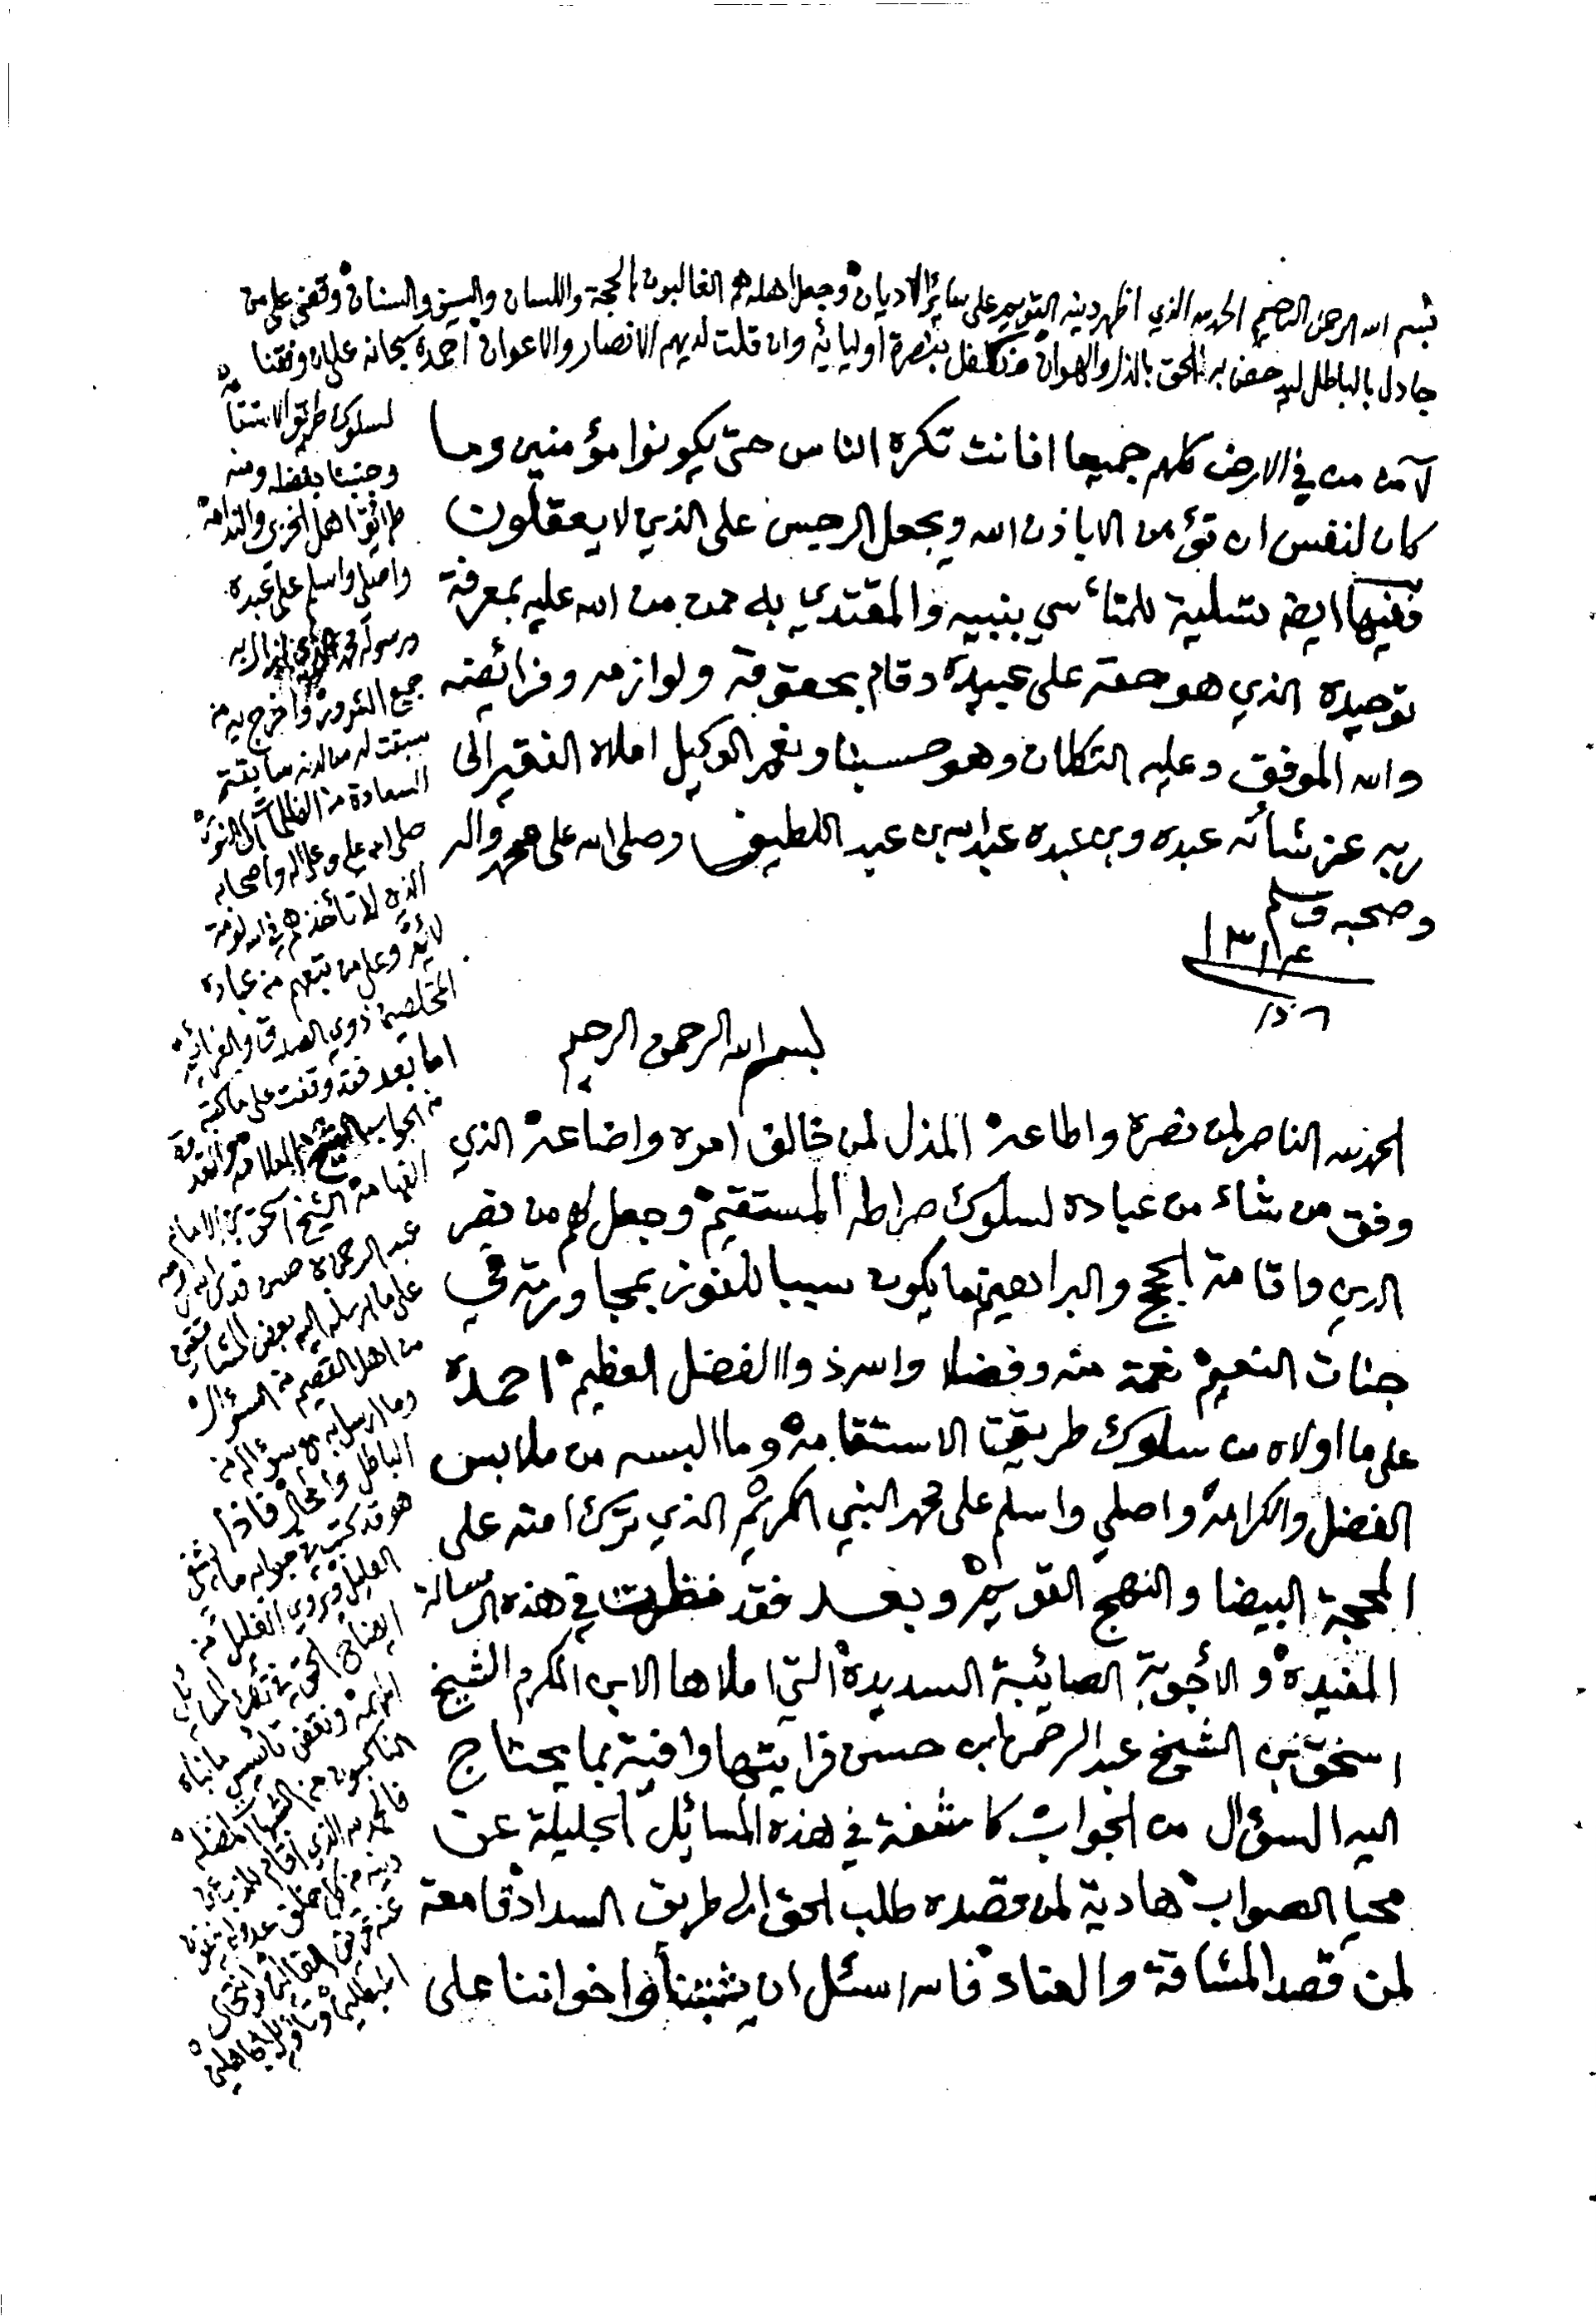 بسم الله الرحمن الرحيم الحمد لله الذي اظهر دينه القويم على سائر الاديان وجعل اهله هم الغالبون بالحجة واللسان والسيف والسنان وقضى على من
جادل بالباطل ليدحض به الحق بالذل والهوان وتكفل بنصرة أوليائه وان قلت لديهم الانصار والاعوان احمده سبحانه على ان وفقنا
لسلوك طريق الاستقامة
وجنبنا بفضله ومنه
طرائق اهل الخزي والندامة
واصلي واسلم على عبده
ورسوله محمد الذي ازال به
جميع الشرور واخرج به من
سبقت له من الله سابقة
السعادة من الظلمات الى النور
صلى الله عليه وعلى اله واصحابه
الذين لا تأخذهم في الله لومة
لائم وعلى من تبعهم من عباده
المخلصين ذوي الصدق والعزائم
اما بعد فقد وقفت على ما كتبه
من الجواب الشيخ العلامة
الفهامة الشيخ اسحق بن الامام
عبد الرحمن بن حسن قدس الله روحه
على ما ارسله اليه بعض
من اهل القصيم من السؤال
وما ارسل به من سؤاله من
الباطل والمحال فاذا
هو قد كتب في جوابه ما يشفي
العليل ويروي الغليل من
ايضاح الحق في تلك المسائل
المهمة ونقض تأسيس ما بناه
الناكبون من الشبه المضلة
فالحمد لله الذي اقام للذب عن
دينه من كل خلف عدولا ينفون
عنه تحريف الغالين وانتحال
المبطلين وتأويل الجاهلين
لآمن من في الارض كلهم جميعا افانت تكره الناس حتى يكونوا مؤمنين وما
كان لنفس ان تؤمن الا باذن الله ويجعل الرجس على الذين لا يعقلون
ففيها ايضا تسلية للمتأسي بنبيه والمقتدي به ممن من الله عليه بمعرفة
توحيده الذي هو حقه على عبيده وقام بحقوقه ولوازمه وفرائضه
والله الموفق وعليه التكلان وهو حسبنا ونعم الوكيل املاه الفقير الى
ربه عز شأنه عبده وبن عبده عبد الله بن عبد اللطيف وصلى الله على محمد واله
وصحبه وسلم
بسم الله الرحمن الرحيم
الحمد لله الناصر لمن نصره واطاعه المذل لمن خالف امره واضاعه الذي
وفق من شاء من عباده لسلوك صراطه المستقيم وجعل لهم من نصر
الدين واقامة الحجج والبراهين ما يكون سببا للفوز بمجاورته في
جنات النعيم نعمة منه وفضلا والله ذوا الفضل العظيم احمده
على ما اولاه من سلوك طريقة الاستقامة وما البسه من ملابس
الفضل والكرامة واصلي واسلم على محمد النبي الكريم الذي ترك امته على
المحجة البيضا والنهج القويم وبعد فقد نظرت في هذه الرسالة
المفيدة والأجوبة الصائبة السديدة التي املاها الابن المكرم الشيخ
اسحق بن الشيخ عبد الرحمن ابن حسن فرايتها وافية بما يحتاج
اليه السؤال من الجواب كاشفة في هذه المسائل الجليلة عن
محيا الصواب هادية لمن قصده طلب الحق الى طريق السداد قامعة
لمن قصد المشاقة والعناد فالله اسئل ان يثبتنا واخواننا على